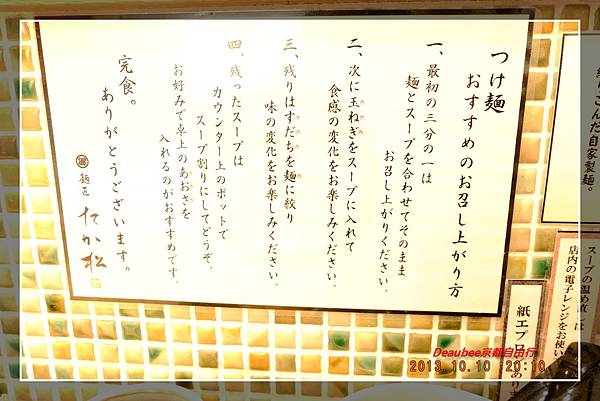 つけ麺
おすすめのお召し上がり方
一、最初の三分の一は
麺とスープを合わせてそのまま
お召し上がりください。
二、次に玉ねぎをスープに入れて
食感の変化をお楽しみください。
三、残りはすだちを麺に絞り
味の変化をお楽しみください。
四、残ったスープは
カウンター上のポットで
スープ割りにしてどうぞ。
お好みで卓上のあおさを
入れるのがおすすめです。
完食。
ありがとうございます。
麺屋 たか松
こんだ自家製麺。
スープの温め直しは
店内の電子レンジをお使い
紙エプロ
あります
Deaubee京都自由行
2013.10.10 20:10